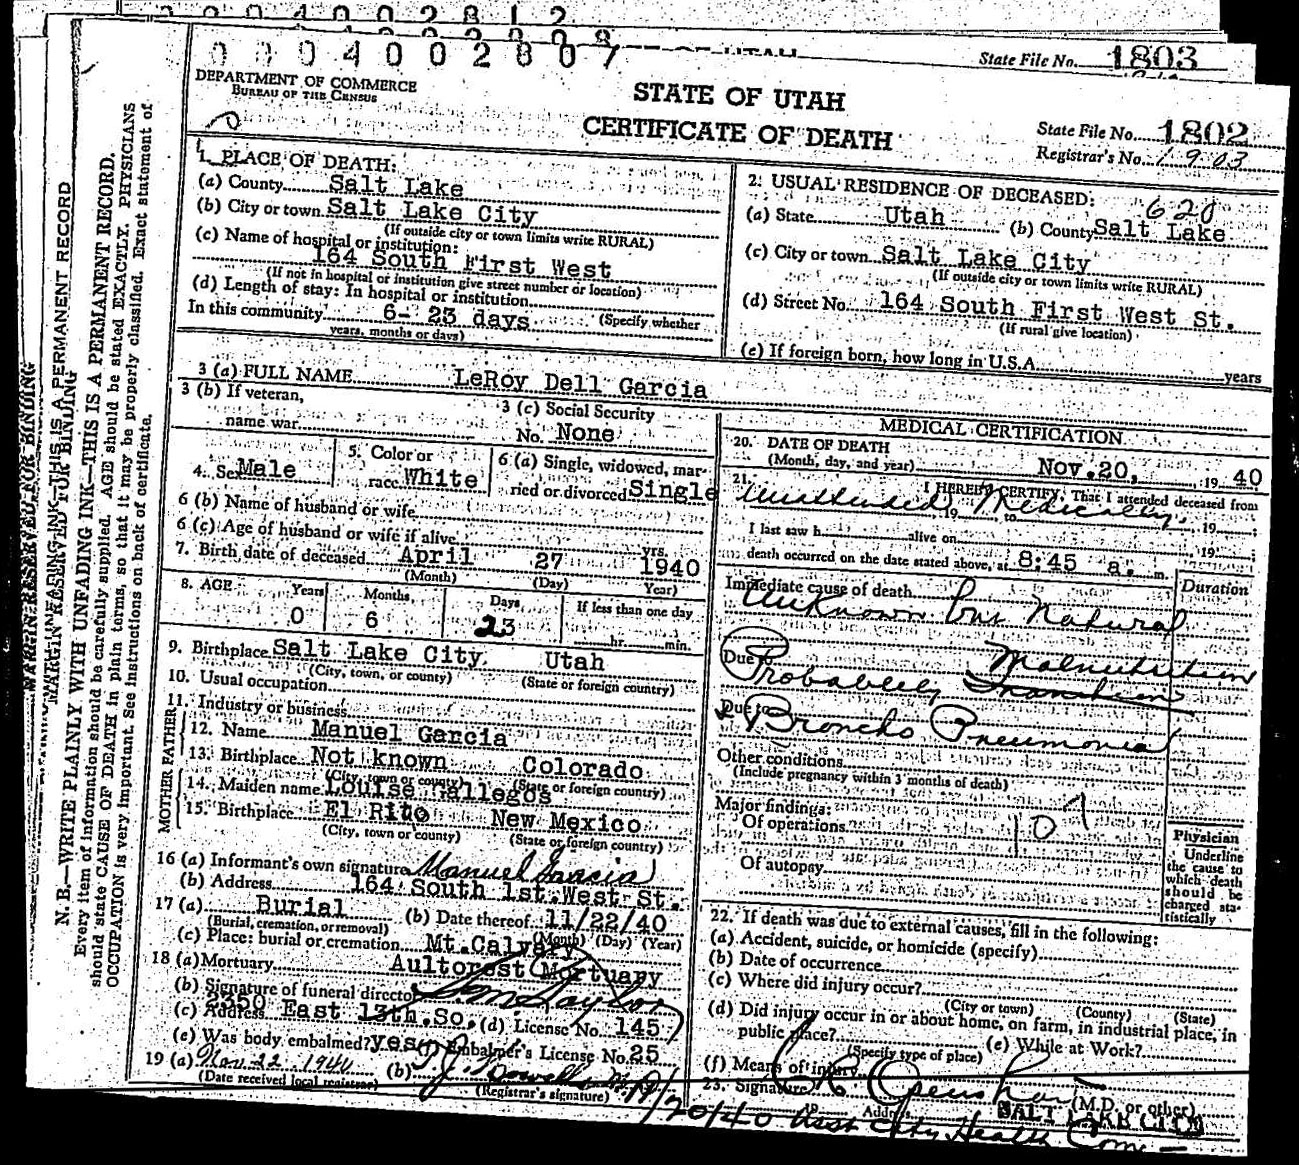 0 0 0 4 0 0 2 8 1 2
0 0 0 4 0 0 2 8 0 7
State File No. 1803
DEPARTMENT OF COMMERCE
BUREAU OF THE CENSUS
STATE OF UTAH
CERTIFICATE OF DEATH
State File No. 1802
Registrar's No. 1903
MARGIN RESERVED FOR BINDING
N. B.—WRITE PLAINLY WITH UNFADING INK—THIS IS A PERMANENT RECORD.
Every item of information should be carefully supplied. AGE should be stated EXACTLY. PHYSICIANS
should state CAUSE OF DEATH in plain terms, so that it may be properly classified. Exact statement of
OCCUPATION is very important. See instructions on back of certificate.
1. PLACE OF DEATH:
(a) County Salt Lake
(b) City or town Salt Lake City
(If outside city or town limits write RURAL)
(c) Name of hospital or institution:
164 South First West
(If not in hospital or institution give street number or location)
(d) Length of stay: In hospital or institution
In this community 6- 23 days (Specify whether
years, months or days)
2. USUAL RESIDENCE OF DECEASED:
620
(a) State Utah (b) County Salt Lake
(c) City or town Salt Lake City
(If outside city or town limits write RURAL)
(d) Street No. 164 South First West St.
(If rural give location)
(e) If foreign born, how long in U.S.A. years
3 (a) FULL NAME LeRoy Dell Garcia
3 (b) If veteran,
name war
3 (c) Social Security
No. None
4. Sex Male
5. Color or
race White
6 (a) Single, widowed, mar-
ried or divorced Single
6 (b) Name of husband or wife
6 (c) Age of husband or wife if alive yrs.
7. Birth date of deceased April 27 1940
(Month) (Day) Year)
8. AGE Years Months Days If less than one day
0 6 23 hr. min.
9. Birthplace Salt Lake City Utah
(City, town, or county) (State or foreign country)
10. Usual occupation
11. Industry or business
FATHER
12. Name Manuel Garcia
13. Birthplace Not known Colorado
(City, town or county) (State or foreign country)
MOTHER
14. Maiden name Louise Gallegos
15. Birthplace El Rito New Mexico
(City, town or county) (State or foreign country)
16 (a) Informant's own signature Manuel Garcia
(b) Address 164 South 1st West St.
17 (a) Burial (b) Date thereof 11/22/40
(Burial, cremation, or removal) (Month) (Day) (Year)
(c) Place: burial or cremation Mt. Calvary
18 (a) Mortuary Aultorest Mortuary
(b) Signature of funeral director
(c) Address 2350 East 13th. So. (d) License No. 145
(e) Was body embalmed? yes (f) Embalmer's License No. 25
19 (a) Nov 22 1940 (b)
(Date received local registrar) (Registrar's signature)
MEDICAL CERTIFICATION
20. DATE OF DEATH
(Month, day, and year) Nov. 20, 19 40
21. I HEREBY CERTIFY, That I attended deceased from
Unattended Medically 19 to 19
I last saw h alive on 19
death occurred on the date stated above, at 8:45 a. m.
Immediate cause of death Duration
Unknown but Natural
Due to Malnutrition
Probablely Inanition
Due to
Broncho Pneumonia
Other conditions
(Include pregnancy within 3 months of death)
Major findings:
Of operations
107
Of autopsy
Physician
Underline
the cause to
which death
should be
charged sta-
tistically
22. If death was due to external causes, fill in the following:
(a) Accident, suicide, or homicide (specify)
(b) Date of occurrence
(c) Where did injury occur?
(City or town) (County) (State)
(d) Did injury occur in or about home, on farm, in industrial place, in
public place? (e) While at Work?
(Specify type of place)
(f) Means of injury
23. Signature Openshaw (M.D. or other)
Address SALT LAKE CITY
11/20/40 Asst City Health Com